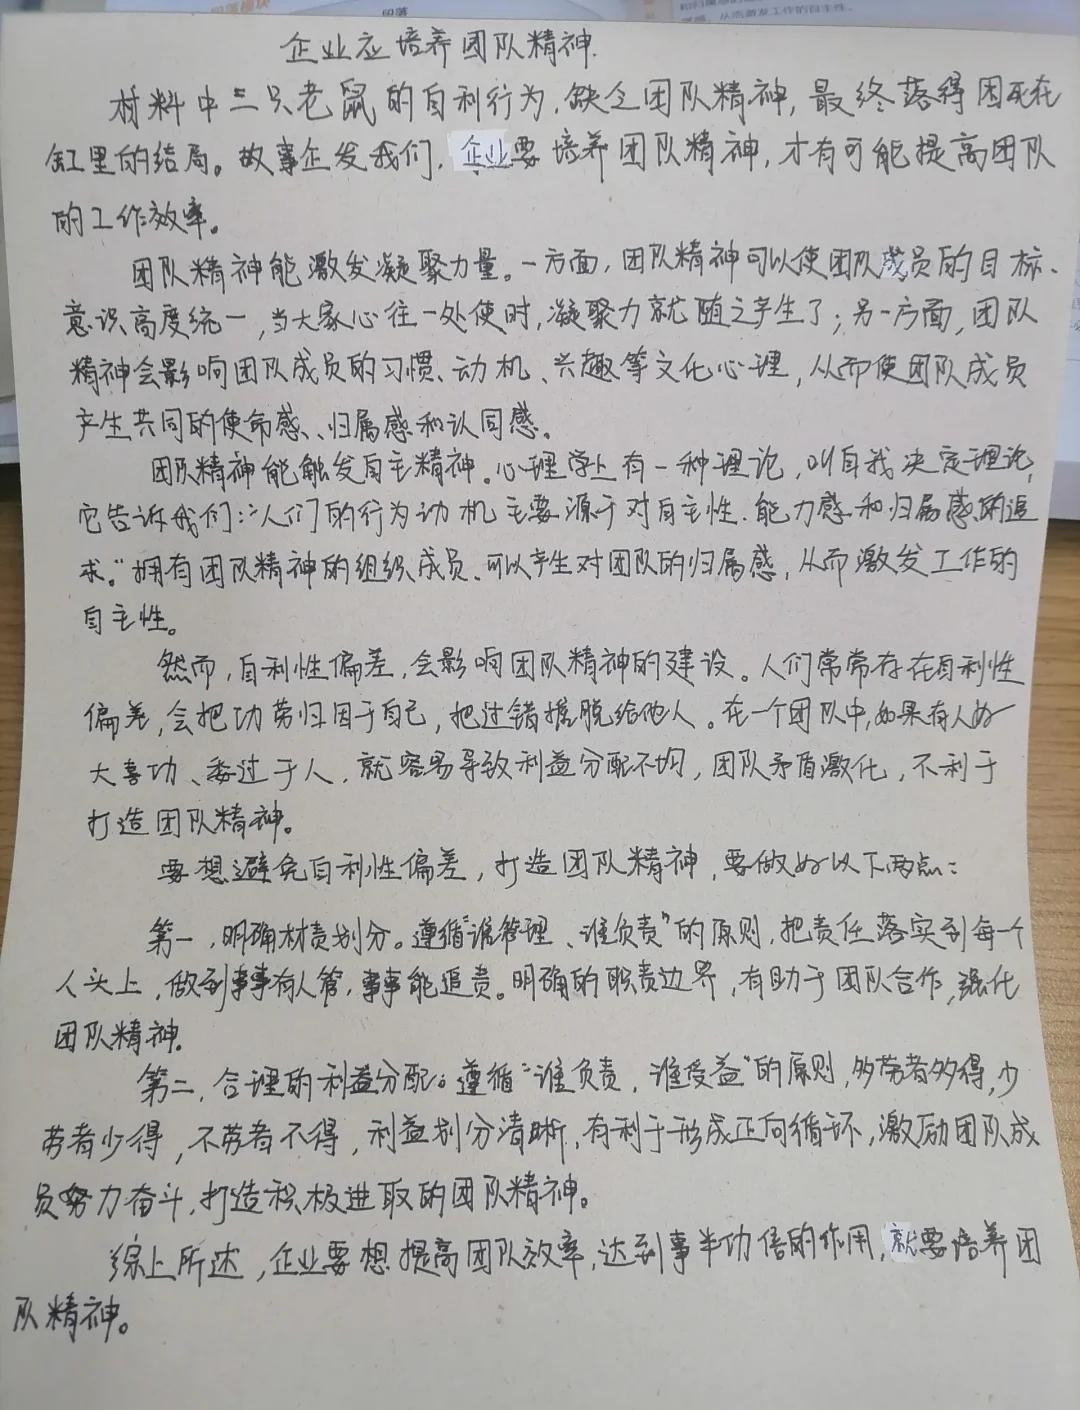 落
从而激发工作的自主性。
企业应培养团队精神.
材料中三只老鼠的自利行为,缺乏团队精神,最终落得困死在
缸里的结局。故事企发我们,企业要培养团队精神,才有可能提高团队
的工作效率。
团队精神能激发凝聚力量。一方面,团队精神可以使团队成员的目标、
意识高度统一,当大家心往一处使时,凝聚力就随之产生了;另一方面,团队
精神会影响团队成员的习惯、动机、兴趣等文化心理,从而使团队成员
产生共同的使命感、归属感和认同感。
团队精神能触发自主精神。心理学上有一种理论,叫自我决定理论,
它告诉我们:“人们的行为动机主要源于对自主性、能力感和归属感的追
求。”拥有团队精神的组织成员、可以产生对团队的归属感,从而激发工作的
自主性。
然而,自利性偏差,会影响团队精神的建设。人们常常存在自利性
偏差,会把功劳归因于自己,把过错推脱给他人。在一个团队中,如果有人好
大喜功、委过于人,就容易导致利益分配不均,团队矛盾激化,不利于
打造团队精神。
要想避免自利性偏差,打造团队精神,要做好以下两点:
第一,明确材责划分。遵循“谁管理、谁负责”的原则,把责任落实到每一个
人头上,做到事事有人管,事事能追责。明确的职责边界,有助于团队合作,强化
团队精神.
第二,合理的利益分配。遵循“谁负责,谁受益”的原则,多劳者多得,少
劳者少得,不劳者不得,利益划分清晰,有利于形成正向循环,激励团队成
员努力奋斗,打造积极进取的团队精神。
综上所述,企业要想提高团队效率,达到事半功倍的作用,就要培养团
队精神。